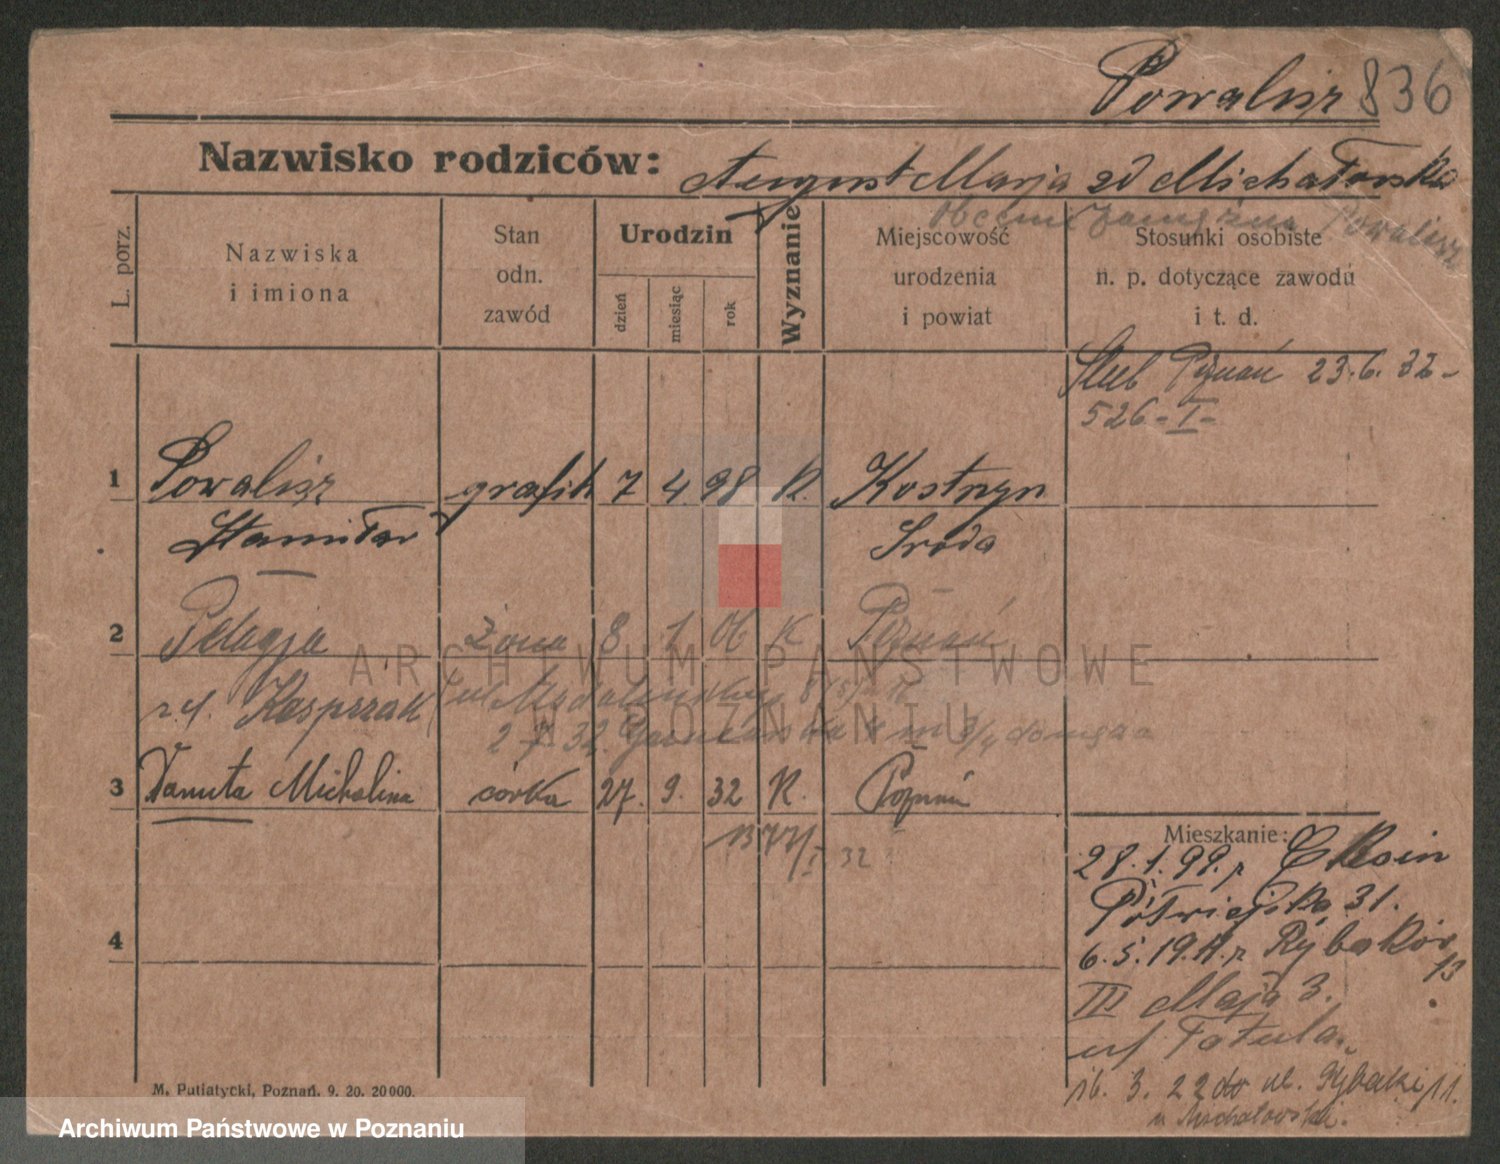 Powalisz 836
Nazwisko rodziców: August Marja zd Michałowska
obecnie zamężna Powalisz
L. porz.
Nazwiska
i imiona
Stan
odn.
zawód
Urodzin
dzień
miesiąc
rok
Wyznanie
Miejscowość
urodzenia
i powiat
Stosunki osobiste
n. p. dotyczące zawodu
i t. d.
Ślub Poznań 23.6.32-
526-I-
1 Powalisz grafik 7 4. 98 K. Kostrzyn
Stanisław Środa
2 Pelagja żona 8 1 06 K Poznań
Kasprzak
2 7. 32.
3 Danuta Michalina córka 27. 9. 32 K. Poznań
32
Mieszkanie:
28.1.99.
Półwiejska 31.
6.5.19 Rybaków
13
III Maja 3.
16. 3. 22 do ul. Rybaki 11.
u Michałowska.
4
M. Putiatycki, Poznań. 9. 20. 20000.
ARCHIWUM PAŃSTWOWE
W POZNANIU
Archiwum Państwowe w Poznaniu